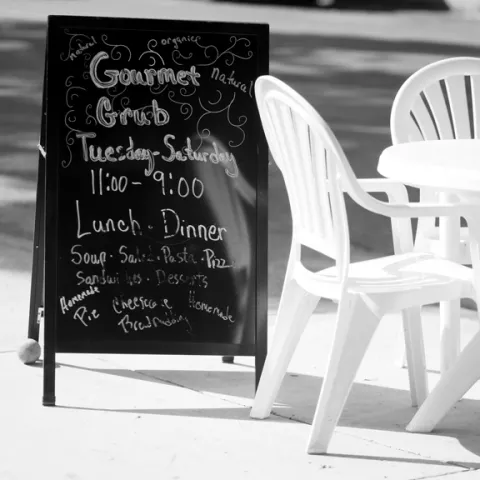 natural organic
Gourmet natural
Grub
Tuesday-Saturday
11:00-9:00
Lunch - Dinner
Soup - Salad - Pasta - Pizz
Sandwiches - Desserts
Homemade Cheesecake Homemade
Pie Breadpudding